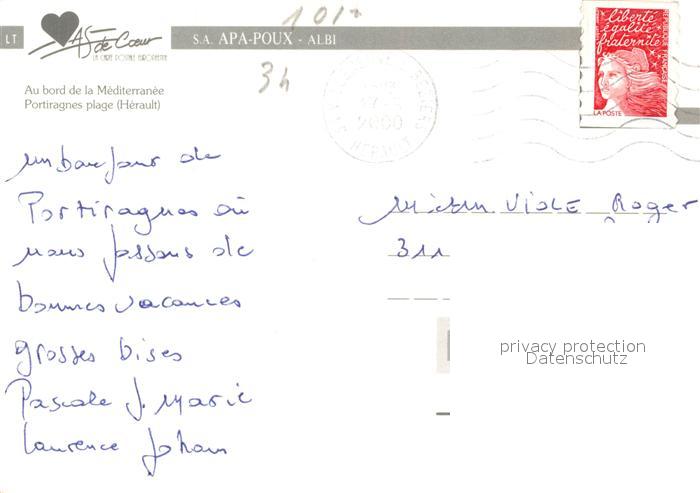 101?
LT
AS de Cœur
LA CARTE POSTALE EUROPEENNE
S.A. APA-POUX - ALBI
3h
liberté
égalité
fraternité
RÉPUBLIQUE FRANÇAISE
LA POSTE
Au bord de la Méditerranée
Portiragnes plage (Hérault)
2000
HERAULT
un bonjour de
Portiragnes où
nous passons de
bonnes vacances
grosses bises
Pascale J. Marie
Laurence Johan
VIALE Roger
311
privacy protection
Datenschutz